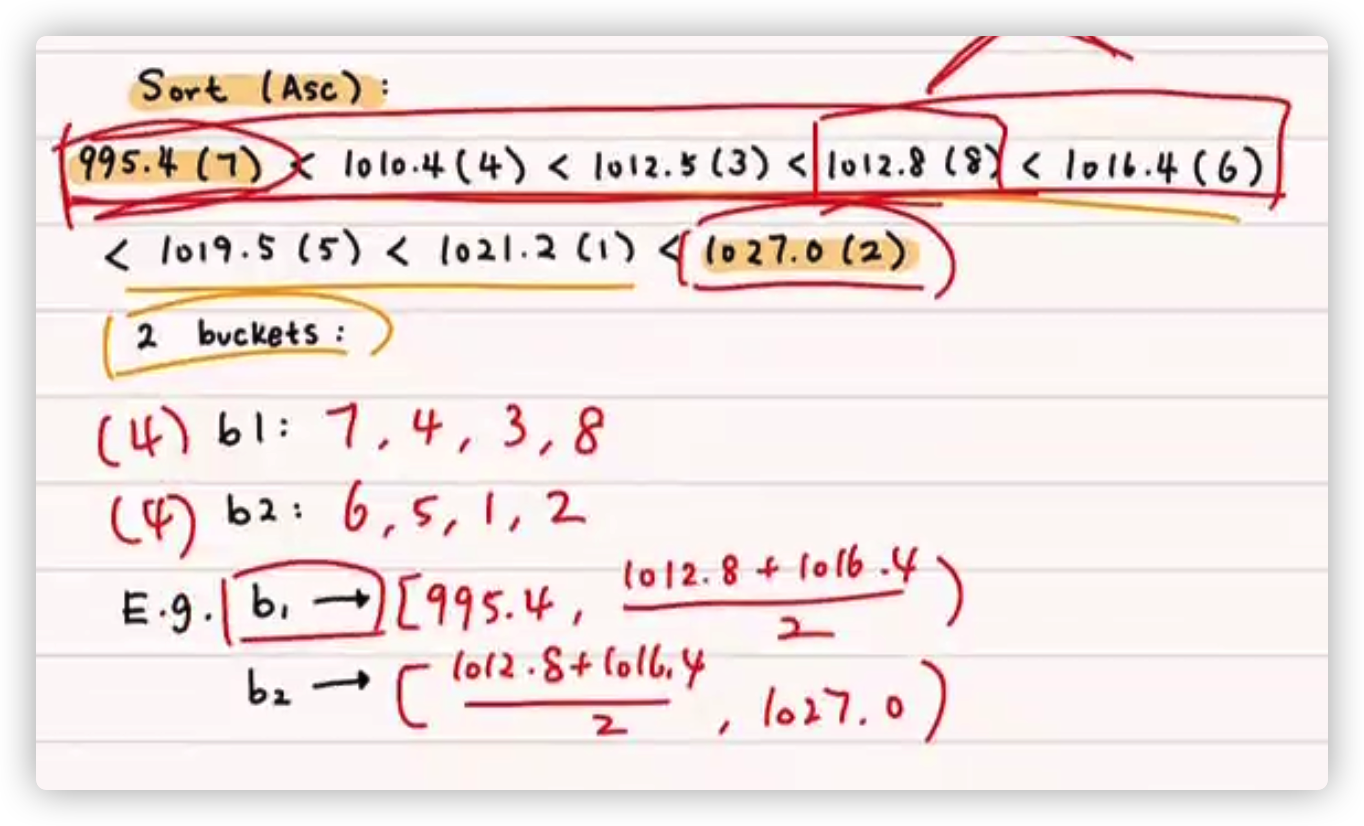 Sort (Asc):
995.4 (7) < 1010.4 (4) < 1012.5 (3) < 1012.8 (8) < 1016.4 (6)
< 1019.5 (5) < 1021.2 (1) < 1027.0 (2)
2 buckets:
(4) b1: 7, 4, 3, 8
(4) b2: 6, 5, 1, 2
E.g. b₁ → [995.4, (1012.8 + 1016.4)/2)
b₂ → [(1012.8 + 1016.4)/2, 1027.0)